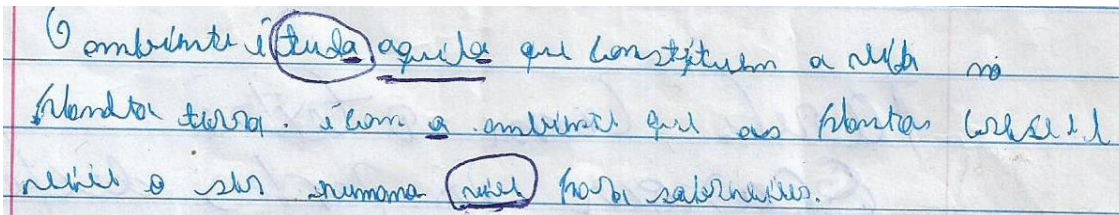 O ambiente é tuda aquila que constituem a vida no
planeta terra. é com a ambiente que as plantas crese e
o ser humana para